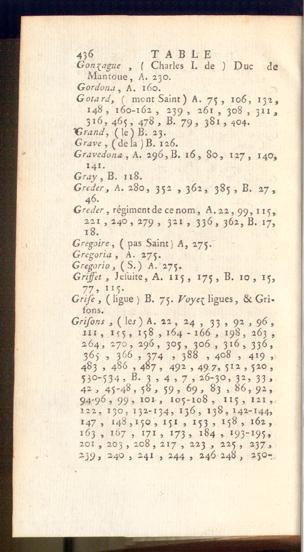 436 TABLE
Gonzague, (Charles I. de) Duc de
Mantoue, A. 230.
Gordona, A. 160.
Gotard, (mont Saint) A. 75, 106, 132,
148, 160-162, 239, 261, 308, 311,
316, 465, 478, B. 79, 381, 404.
Grand, (le) B. 23.
Grave, (de la) B. 126.
Gravedona, A. 296, B. 16, 80, 127, 140,
141.
Gray, B. 118.
Greder, A. 280, 352, 362, 385, B. 27,
46.
Greder, régiment de ce nom, A. 22, 99, 115,
221, 240, 279, 321, 336, 362, B. 17,
18.
Gregoire, (pas Saint) A, 275.
Gregoria, A. 275.
Gregorio, (S.) A. 275.
Griffet, Jésuite, A. 115, 175, B. 10, 15,
77, 115.
Grise, (ligue) B. 75. Voyez ligues, & Gri-
sons.
Grisons, (les) A. 22, 24, 33, 92, 96,
111, 155, 158, 164-166, 198, 263,
264, 270, 296, 305, 306, 316, 336,
365, 366, 374, 388, 408, 419,
483, 486, 487, 492, 497, 512, 520,
530-534, B. 3, 4, 7, 26-30, 32, 33,
42, 45-48, 58, 59, 69, 83, 86, 92,
94-96, 99, 101, 105-108, 115, 121,
122, 130, 132-134, 136, 138, 142-144,
147, 148, 150, 151, 153, 158, 162,
163, 167, 171, 173, 184, 193-195,
201, 203, 208, 217, 223, 225, 237,
239, 240, 241, 244, 246 248, 250-